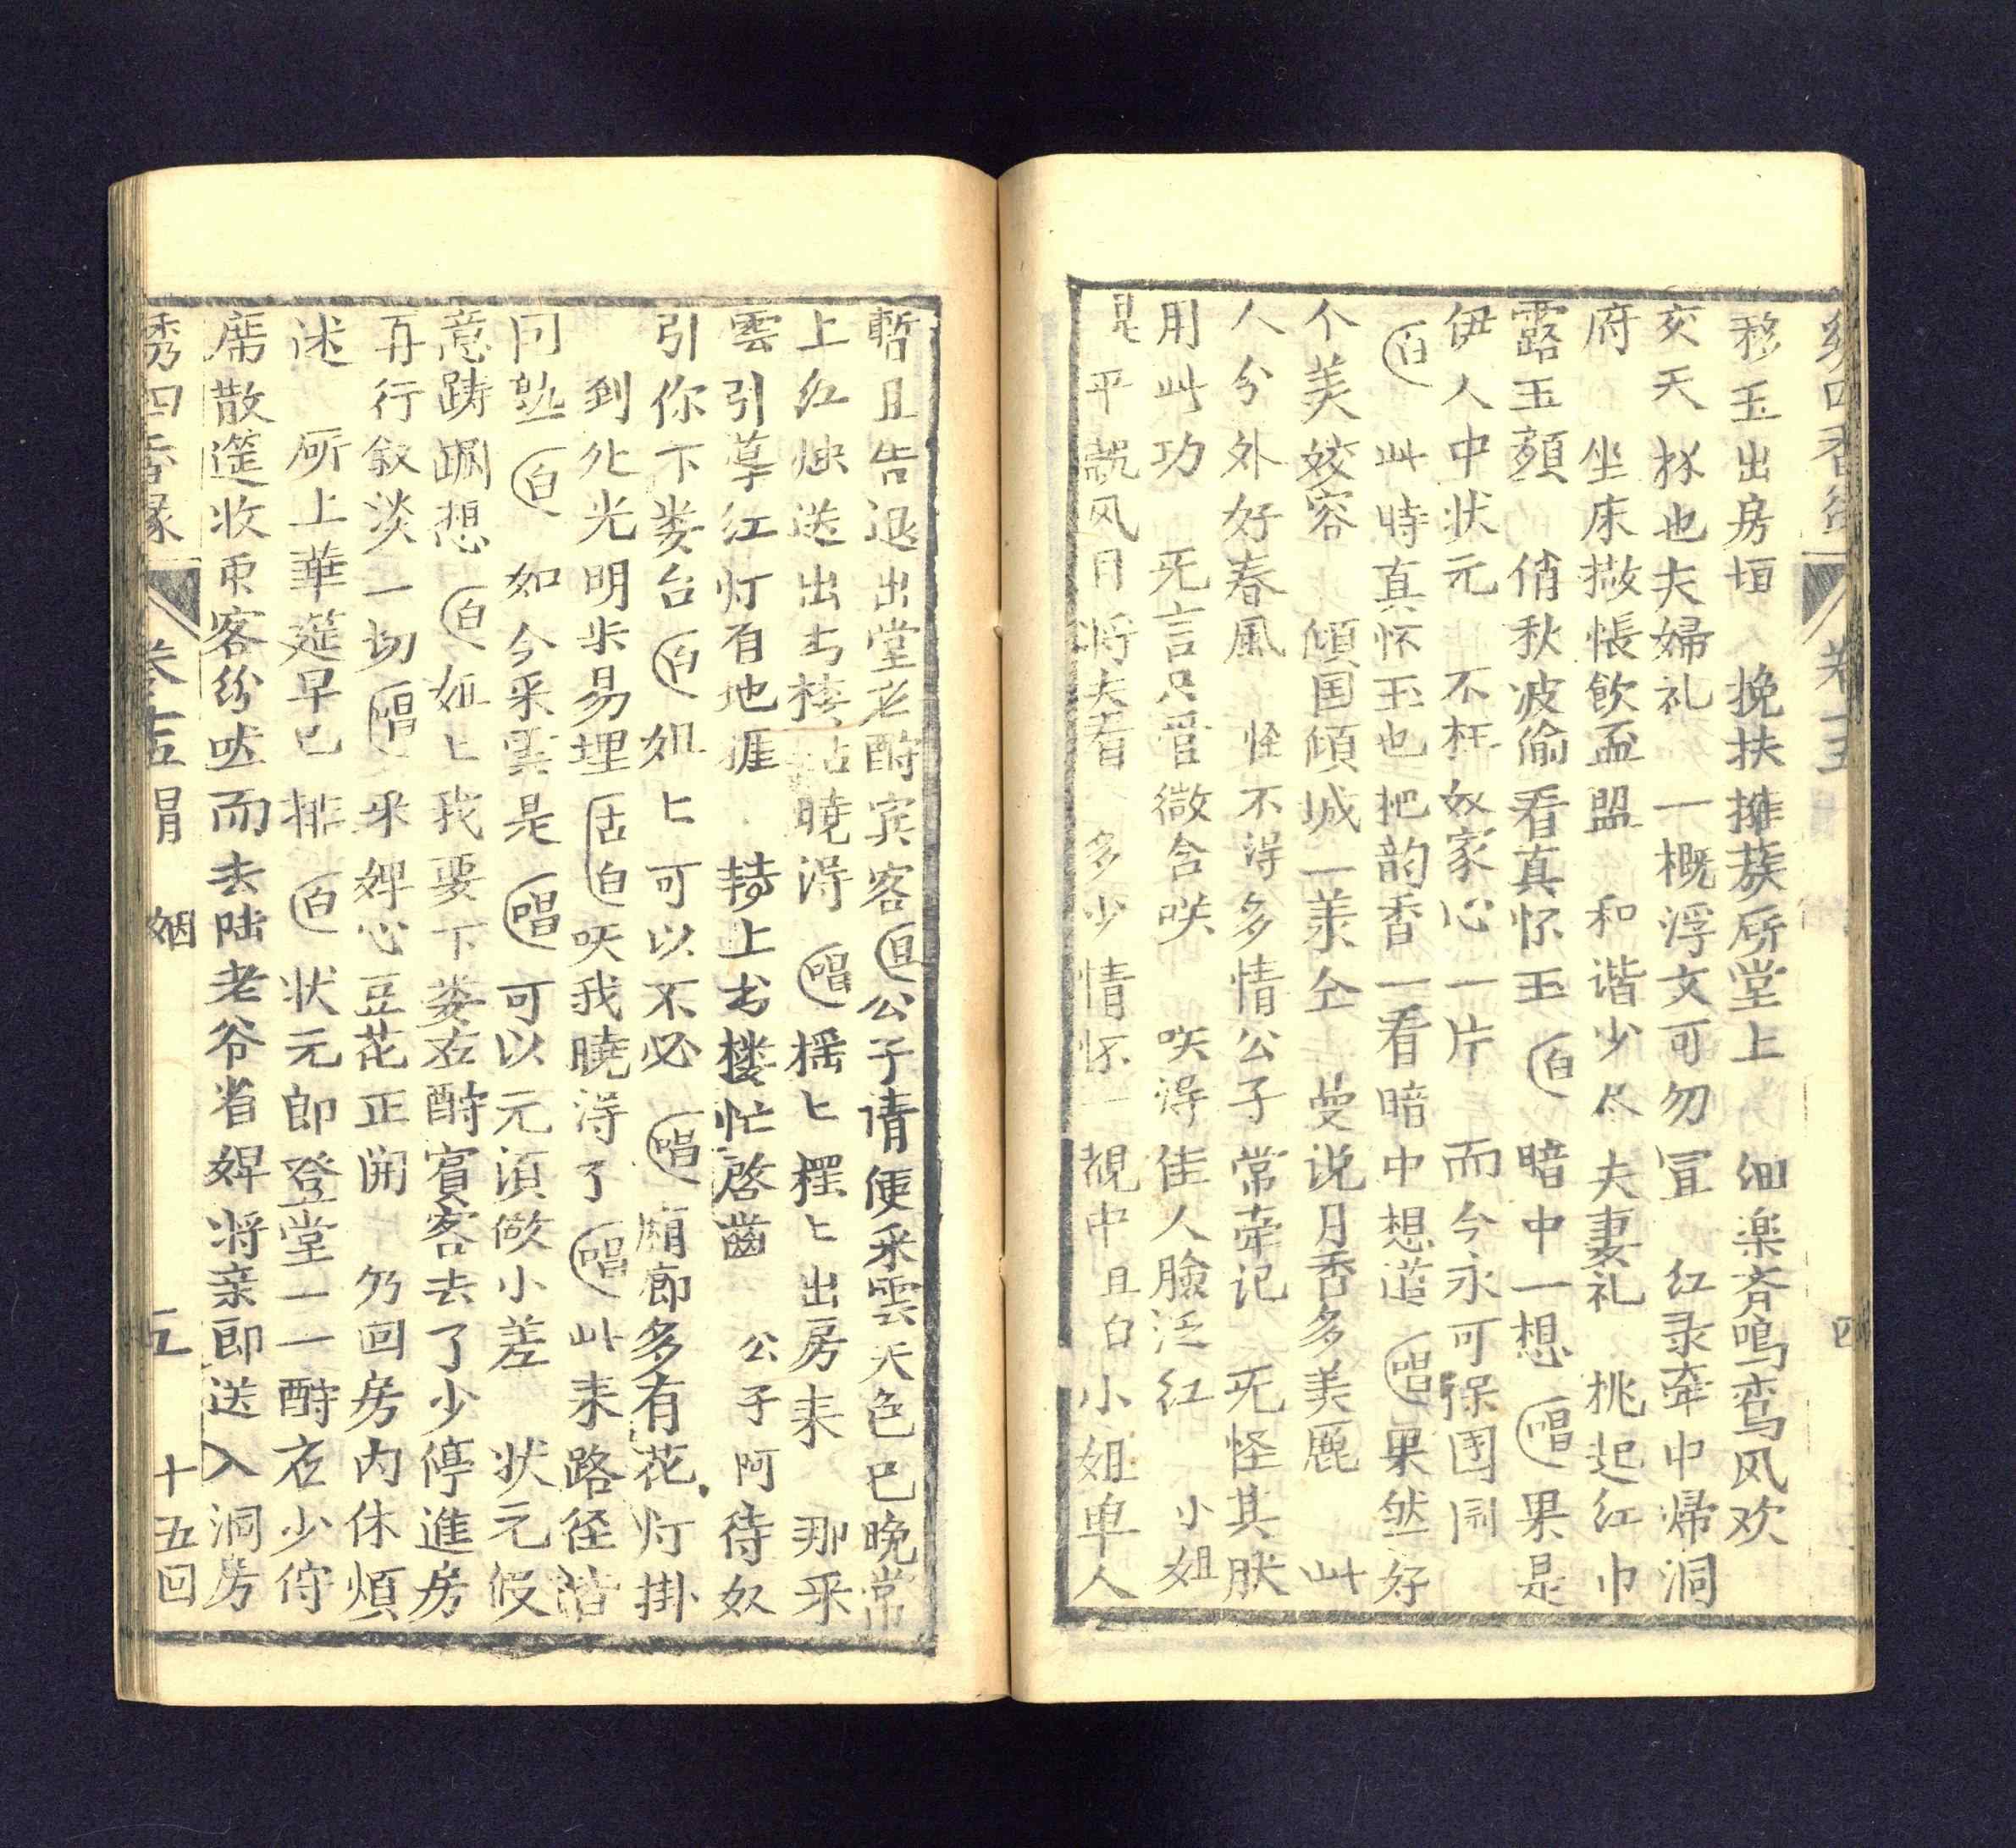 绣四香缘 卷十五 四
移玉出房垣 挽扶擁蔟㕔堂上 細楽斉鳴鸾风欢
交天拜也夫婦礼 一概浮文可勿冝 红录牽中帰洞
府 坐床撒帳飲盃盟 和谐少尽夫妻礼 桃起红巾
露玉顔 俏秋波偷看真怀玉 白 暗中一想 唱 果是
伊人中状元 不枉奴家心一片 而今永可保团圆
白 此時真怀玉也把韵香一看暗中想道 唱 果然好
个美姣容 傾国傾城一美仝 曼说月香多美麗 此
人分外好春風 怪不得多情公子常牽记 旡怪其肰
用此功 旡言只管微含咲 咲得佳人臉泛红 小姐
是平靚风月将夫看 多少情怀一覩中 旦白 小姐单人
暫且告退出堂老酧宾客 旦 公子请便采雲天色已晚常
上红烛送出书楼 曉得 唱 揺匕擺匕出房来 那采
雲引導红灯有地涯 轉上书楼忙啓齒 公子阿待奴
引你下娄台 白 姐匕可以不必 唱 廂廊多有花灯掛
到処光明步易埋 白 咲我曉淂了 唱 此来路径諳
问熟 白 如今采雲是 唱 可以元湏做小差 状元伇
意踌蹰想 白 姐匕我要下娄在酧賓客去了少停進房
再行叙淡 一切 唱 采婢心豆花正開 仍回房内休煩
述 㕔上華筵早已排 白 状元郎登堂一一酧在少侍
席散筵收東客纷肰而去陆老爷着婢将亲郎送入洞房
绣四香缘 卷十五 冐姻 五 十五回